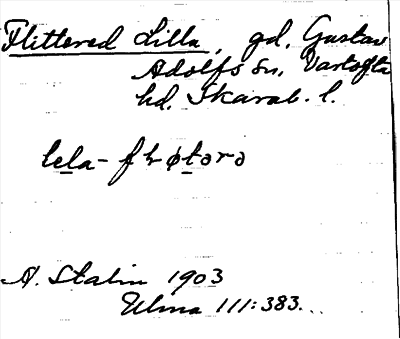 Flittered Lilla, gd, Gustav
Adolfs sn, Vartofta
hd, Skarab. l.
lela-fløtərə
A. Stalin 1903
Ulma 111:383.